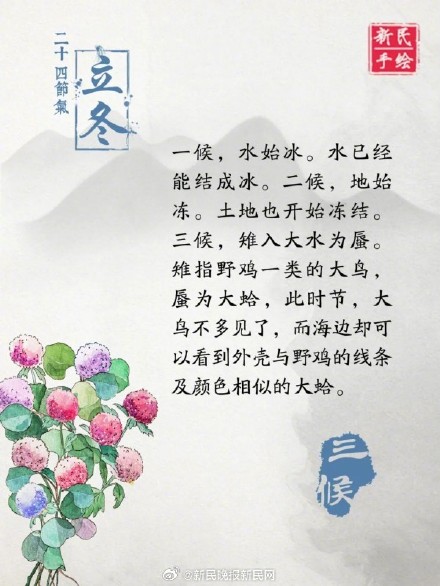 二十四節氣
立冬
新民
手绘
一候，水始冰。水已经
能结成冰。二候，地始
冻。土地也开始冻结。
三候，雉入大水为蜃。
雉指野鸡一类的大鸟，
蜃为大蛤，此时节，大
鸟不多见了，而海边却可
以看到外壳与野鸡的线条
及颜色相似的大蛤。
三候
@新民晚报新民网